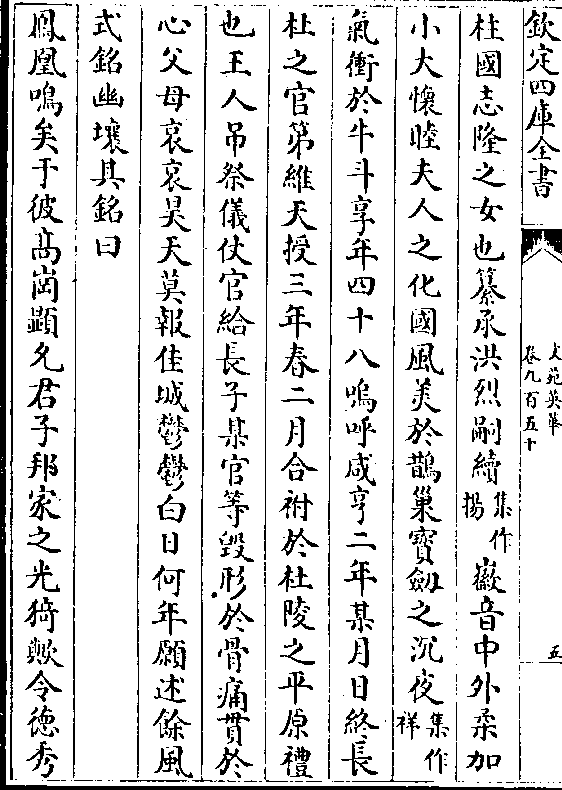 欽定四庫全書
文苑英華
卷九百五十
五
柱國志隆之女也纂承洪烈嗣續集作揚徽音中外柔加
小大懷睦夫人之化國風美於鵲巢寶劔之沉夜集作祥
氣衝於牛斗享年四十八嗚呼咸亨二年某月日終長
杜之官第維天授三年春二月合祔於杜陵之平原禮
也王人吊祭儀仗官給長子某官等毀形於骨痛貫於
心父母哀哀昊天莫報佳城鬱鬱白日何年願述餘風
式銘幽壤其銘曰
鳳凰鳴矣于彼髙崗顯允君子邦家之光猗歟令徳秀